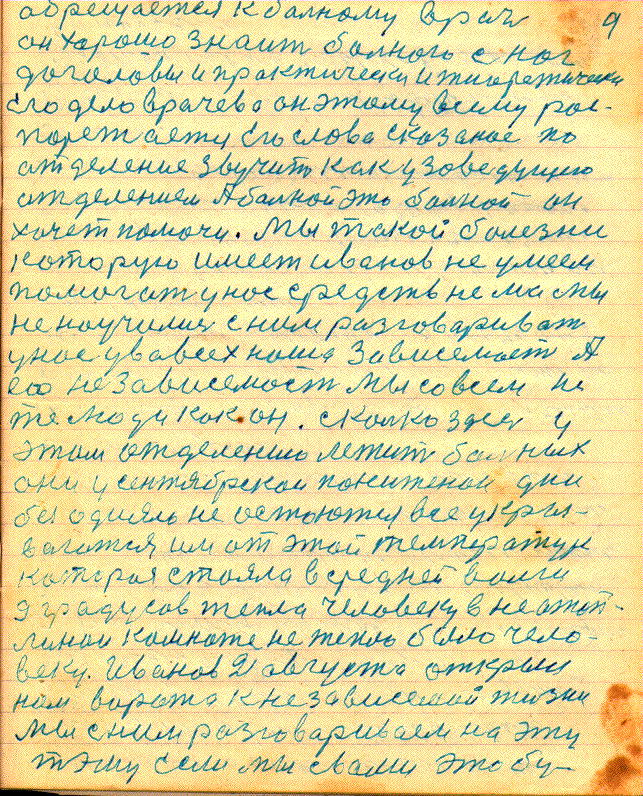 9
обрещается к балному врач
он хорошо знаит болного с ног
доголовы и практически и тиоретически
Его дело врачево он этому всему рос-
поретаету Его слова сказаное по
отделение звучить как у зоведущию
отделением А балной это болной он
хочет помочи. Мы такой болезни
которую имеет иванов не умеем
помогат у нос средств не ма мы
не научилис с ним разговариват
у нас у вовсех наша Зависемост А
его незовисемост мы совсем не
те люди как он. Сколко здес у
этом отделению летит балных
они у сентябрской пониженой дни
без одиял не остоются все укры-
вагатся им от этой температур
которая стояла в средней волги
9 градусов тепла человеку в не отоп-
линой комноте не тепло было чело-
веку. Иванов 21 августа открыл
нам ворота к незовисемой жизни
мы с ним разговариваем на эту
тэму если мы с вами это бу-